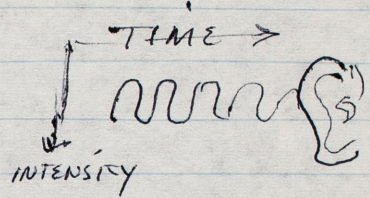 TIME
INTENSITY